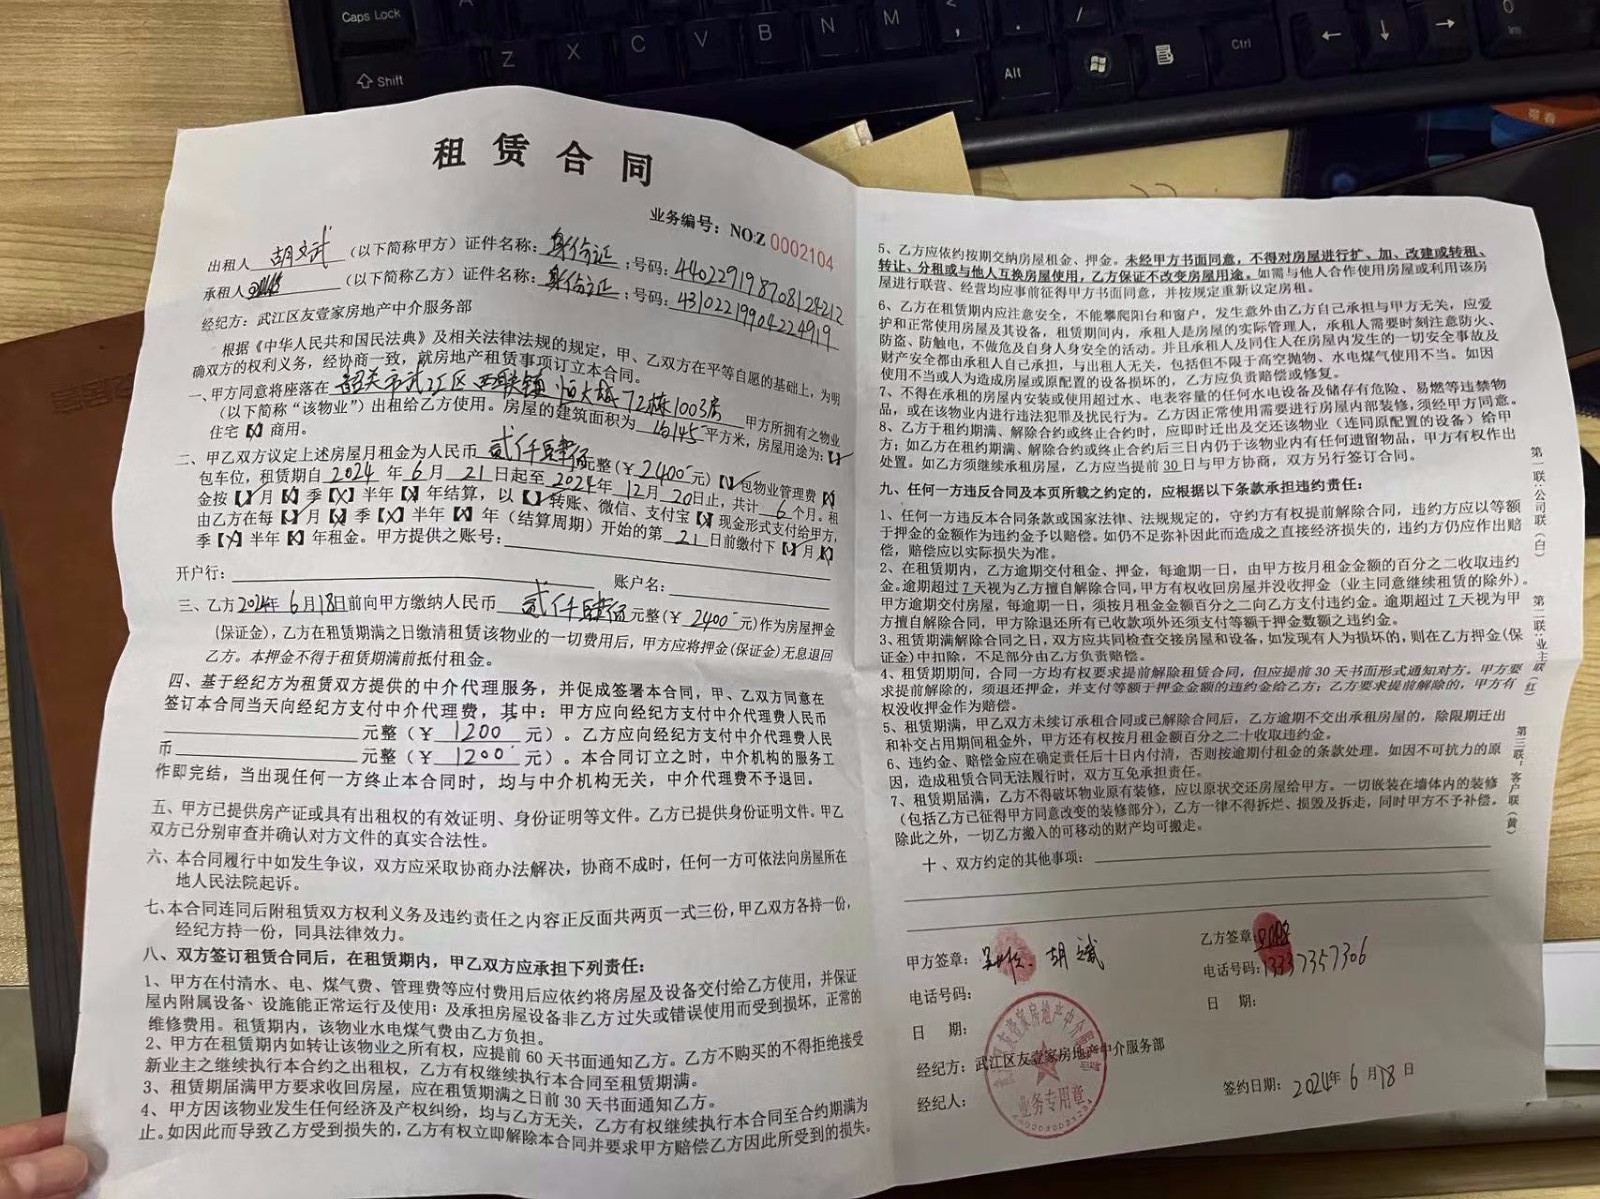 Caps Lock
Shift
Z
X
C
V
B
N
M
Alt
Ctrl
租赁合同
业务编号：NO:Z 0002104
出租人 胡文斌 （以下简称甲方）证件名称：身份证；号码：440229198708124212
承租人 （以下简称乙方）证件名称：身份证；号码：43102219904224919
经纪方：武江区友壹家房地产中介服务部
根据《中华人民共和国民法典》及相关法律法规的规定，甲、乙双方在平等自愿的基础上，为明
确双方的权利义务，经协商一致，就房地产租赁事项订立本合同。
一、甲方同意将座落在 韶关市武江区西联镇恒大城72栋1003房 甲方所拥有之物业
（以下简称“该物业”）出租给乙方使用。房屋的建筑面积为 平方米，房屋用途为：【✓】
住宅【X】商用。
二、甲乙双方议定上述房屋月租金为人民币 贰仟肆佰 元整（￥2400元）【】包物业管理费【X】
包车位，租赁期自 2024 年 6 月 21 日起至 2024 年 12 月 20 日止，共计 6 个月。租
金按【✓】月【X】季【X】半年【X】年结算，以【✓】转账、微信、支付宝【X】现金形式支付给甲方，
由乙方在每【✓】月【X】季【X】半年【X】年（结算周期）开始的第 21 日前缴付下【✓】月【X】
季【X】半年【X】年租金。甲方提供之账号：
开户行： 账户名：
三、乙方 2024年 6月18日前向甲方缴纳人民币 贰仟肆佰 元整（￥2400元）作为房屋押金
（保证金），乙方在租赁期满之日缴清租赁该物业的一切费用后，甲方应将押金（保证金）无息退回
乙方。本押金不得于租赁期满前抵付租金。
四、基于经纪方为租赁双方提供的中介代理服务，并促成签署本合同，甲、乙双方同意在
签订本合同当天向经纪方支付中介代理费，其中：甲方应向经纪方支付中介代理费人民币
元整（￥ 1200 元）。乙方应向经纪方支付中介代理费人民
币 元整（￥ 1200 元）。本合同订立之时，中介机构的服务工
作即完结，当出现任何一方终止本合同时，均与中介机构无关，中介代理费不予退回。
五、甲方已提供房产证或具有出租权的有效证明、身份证明等文件。乙方已提供身份证明文件。甲乙
双方已分别审查并确认对方文件的真实合法性。
六、本合同履行中如发生争议，双方应采取协商办法解决，协商不成时，任何一方可依法向房屋所在
地人民法院起诉。
七、本合同连同后附租赁双方权利义务及违约责任之内容正反面共两页一式三份，甲乙双方各持一份，
经纪方持一份，同具法律效力。
八、双方签订租赁合同后，在租赁期内，甲乙双方应承担下列责任：
1、甲方在付清水、电、煤气费、管理费等应付费用后应依约将房屋及设备交付给乙方使用，并保证
屋内附属设备、设施能正常运行及使用；及承担房屋设备非乙方过失或错误使用而受到损坏，正常的
维修费用。租赁期内，该物业水电煤气费由乙方负担。
2、甲方在租赁期内如转让该物业之所有权，应提前 60 天书面通知乙方。乙方不购买的不得拒绝接受
新业主之继续执行本合约之出租权，乙方有权继续执行本合同至租赁期满。
3、租赁期届满甲方要求收回房屋，应在租赁期满之日前 30 天书面通知乙方。
4、甲方因该物业发生任何经济及产权纠纷，均与乙方无关，乙方有权继续执行本合同至合约期满为
止。如因此而导致乙方受到损失的，乙方有权立即解除本合同并要求甲方赔偿乙方因此所受到的损失。
5、乙方应依约按期交纳房屋租金、押金。未经甲方书面同意，不得对房屋进行扩、加、改建或转租、
转让、分租或与他人互换房屋使用，乙方保证不改变房屋用途。如需与他人合作使用房屋或利用该房
屋进行联营、经营均应事前征得甲方书面同意，并按规定重新议定房租。
6、乙方在租赁期内应注意安全，不能攀爬阳台和窗户，发生意外由乙方自己承担与甲方无关，应爱
护和正常使用房屋及其设备，租赁期间内，承租人是房屋的实际管理人，承租人需要时刻注意防火、
防盗、防触电，不做危及自身人身安全的活动。并且承租人及同住人在房屋内发生的一切安全事故及
财产安全都由承租人自己承担，与出租人无关，包括但不限于高空抛物、水电煤气使用不当。如因
使用不当或人为造成房屋或原配置的设备损坏的，乙方应负责赔偿或修复。
7、不得在承租的房屋内安装或使用超过水、电表容量的任何水电设备及储存有危险、易燃等违禁物
品，或在该物业内进行违法犯罪及扰民行为。乙方因正常使用需要进行房屋内部装修，须经甲方同意。
8、乙方于租约期满、解除合约或终止合约时，应即时迁出及交还该物业（连同原配置的设备）给甲
方；如乙方在租约期满、解除合约或终止合约后三日内仍于该物业内有任何遗留物品，甲方有权作出
处置。如乙方须继续承租房屋，乙方应当提前 30 日与甲方协商，双方另行签订合同。
九、任何一方违反合同及本页所载之约定的，应根据以下条款承担违约责任：
1、任何一方违反本合同条款或国家法律、法规规定的，守约方有权提前解除合同，违约方应以等额
于押金的金额作为违约金予以赔偿。如仍不足弥补因此而造成之直接经济损失的，违约方仍应作出赔
偿，赔偿应以实际损失为准。
2、在租赁期内，乙方逾期交付租金、押金，每逾期一日，由甲方按月租金金额的百分之二收取违约
金。逾期超过 7 天视为乙方擅自解除合同，甲方有权收回房屋并没收押金（业主同意继续租赁的除外）。
甲方逾期交付房屋，每逾期一日，须按月租金金额百分之二向乙方支付违约金。逾期超过 7 天视为甲
方擅自解除合同，甲方除退还所有已收款项外还须支付等额于押金数额之违约金。
3、租赁期满解除合同之日，双方应共同检查交接房屋和设备，如发现有人为损坏的，则在乙方押金（保
证金）中扣除，不足部分由乙方负责赔偿。
4、租赁期期间，合同一方均有权要求提前解除租赁合同，但应提前 30 天书面形式通知对方。甲方要
求提前解除的，须退还押金，并支付等额于押金金额的违约金给乙方；乙方要求提前解除的，甲方有
权没收押金作为赔偿。
5、租赁期满，甲乙双方未续订承租合同或已解除合同后，乙方逾期不交出承租房屋的，除限期迁出
和补交占用期间租金外，甲方还有权按月租金额百分之二十收取违约金。
6、违约金、赔偿金应在确定责任后十日内付清，否则按逾期付租金的条款处理。如因不可抗力的原
因，造成租赁合同无法履行时，双方互免承担责任。
7、租赁期届满，乙方不得破坏物业原有装修，应以原状交还房屋给甲方。一切嵌装在墙体内的装修
（包括乙方已征得甲方同意改变的装修部分），乙方一律不得拆烂、损毁及拆走，同时甲方不予补偿。
除此之外，一切乙方搬入的可移动的财产均可搬走。
十、双方约定的其他事项：
甲方签章： 胡斌
乙方签章：
电话号码：
电话号码：13337357306
日 期：
日 期：
经纪方：武江区友壹家房地产中介服务部
经纪人：
签约日期：2024年 6月18日
业务专用章
第一联：公司联（白）
第二联：业主联（红）
第三联：客户联（黄）